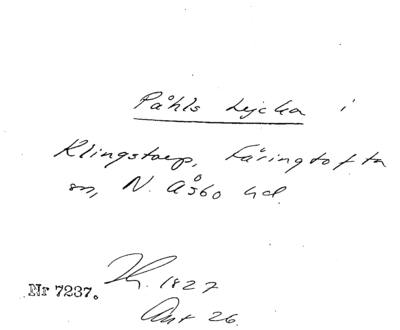 Påhls Lycka i
Klingstorp, Färingtofta
sn, N. Åsbo hd.
Nr 7237.
1827
Akt 26.